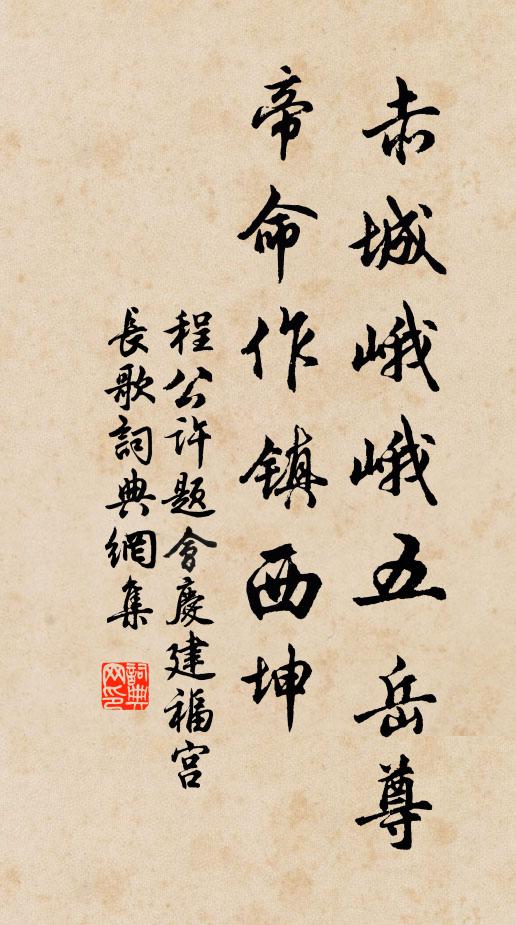 赤城峨峨五岳尊
帝命作镇西坤
程公许题会慶建福宫
長歌詞典網集
詞典
网印